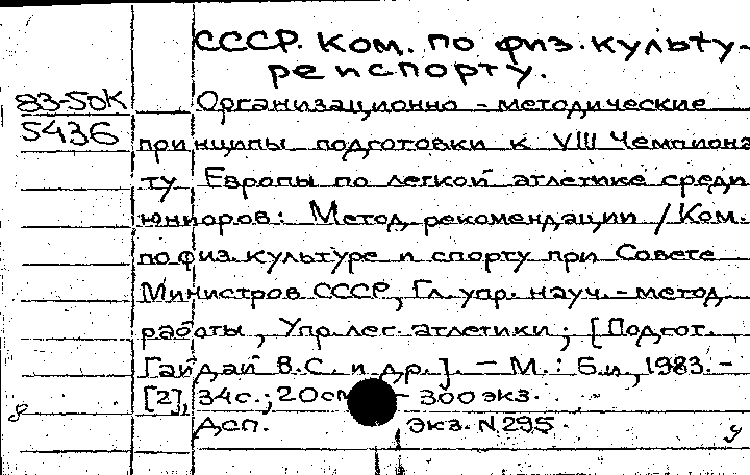 СССР. Ком. по физ. культу-
ре и спорту.
83-5дк Организационно - методические
5436 принципы подготовки к VIII Чемпиона
ту Европы по легкой атлетике среди
юниоров: Метод. рекомендации / Ком.
по физ. культуре и спорту при Совете
Министров СССР, Гл. упр. науч. - метод.
работы, Упр. лег. атлетики; [Подгот.
Гайдай В.С. и др.]. - М.: Б.и., 1983. -
[2], 34 с.; 20 см - 300 экз.
Дсп. Экз. N 295.